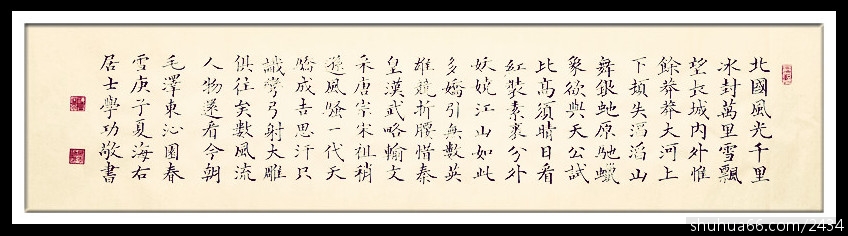 北國風光千里
冰封萬里雪飄
望長城內外惟
餘莽莽大河上
下頓失滔滔山
舞銀蛇原馳蠟
象欲與天公試
比高須晴日看
紅裝素裹分外
妖嬈江山如此
多嬌引無數英
雄競折腰惜秦
皇漢武略輸文
采唐宗宋祖稍
遜風騷一代天
驕成吉思汗只
識彎弓射大雕
俱往矣數風流
人物還看今朝
毛澤東沁園春
雪庚子夏海右
居士學功敬書
shuhua66.com/2454